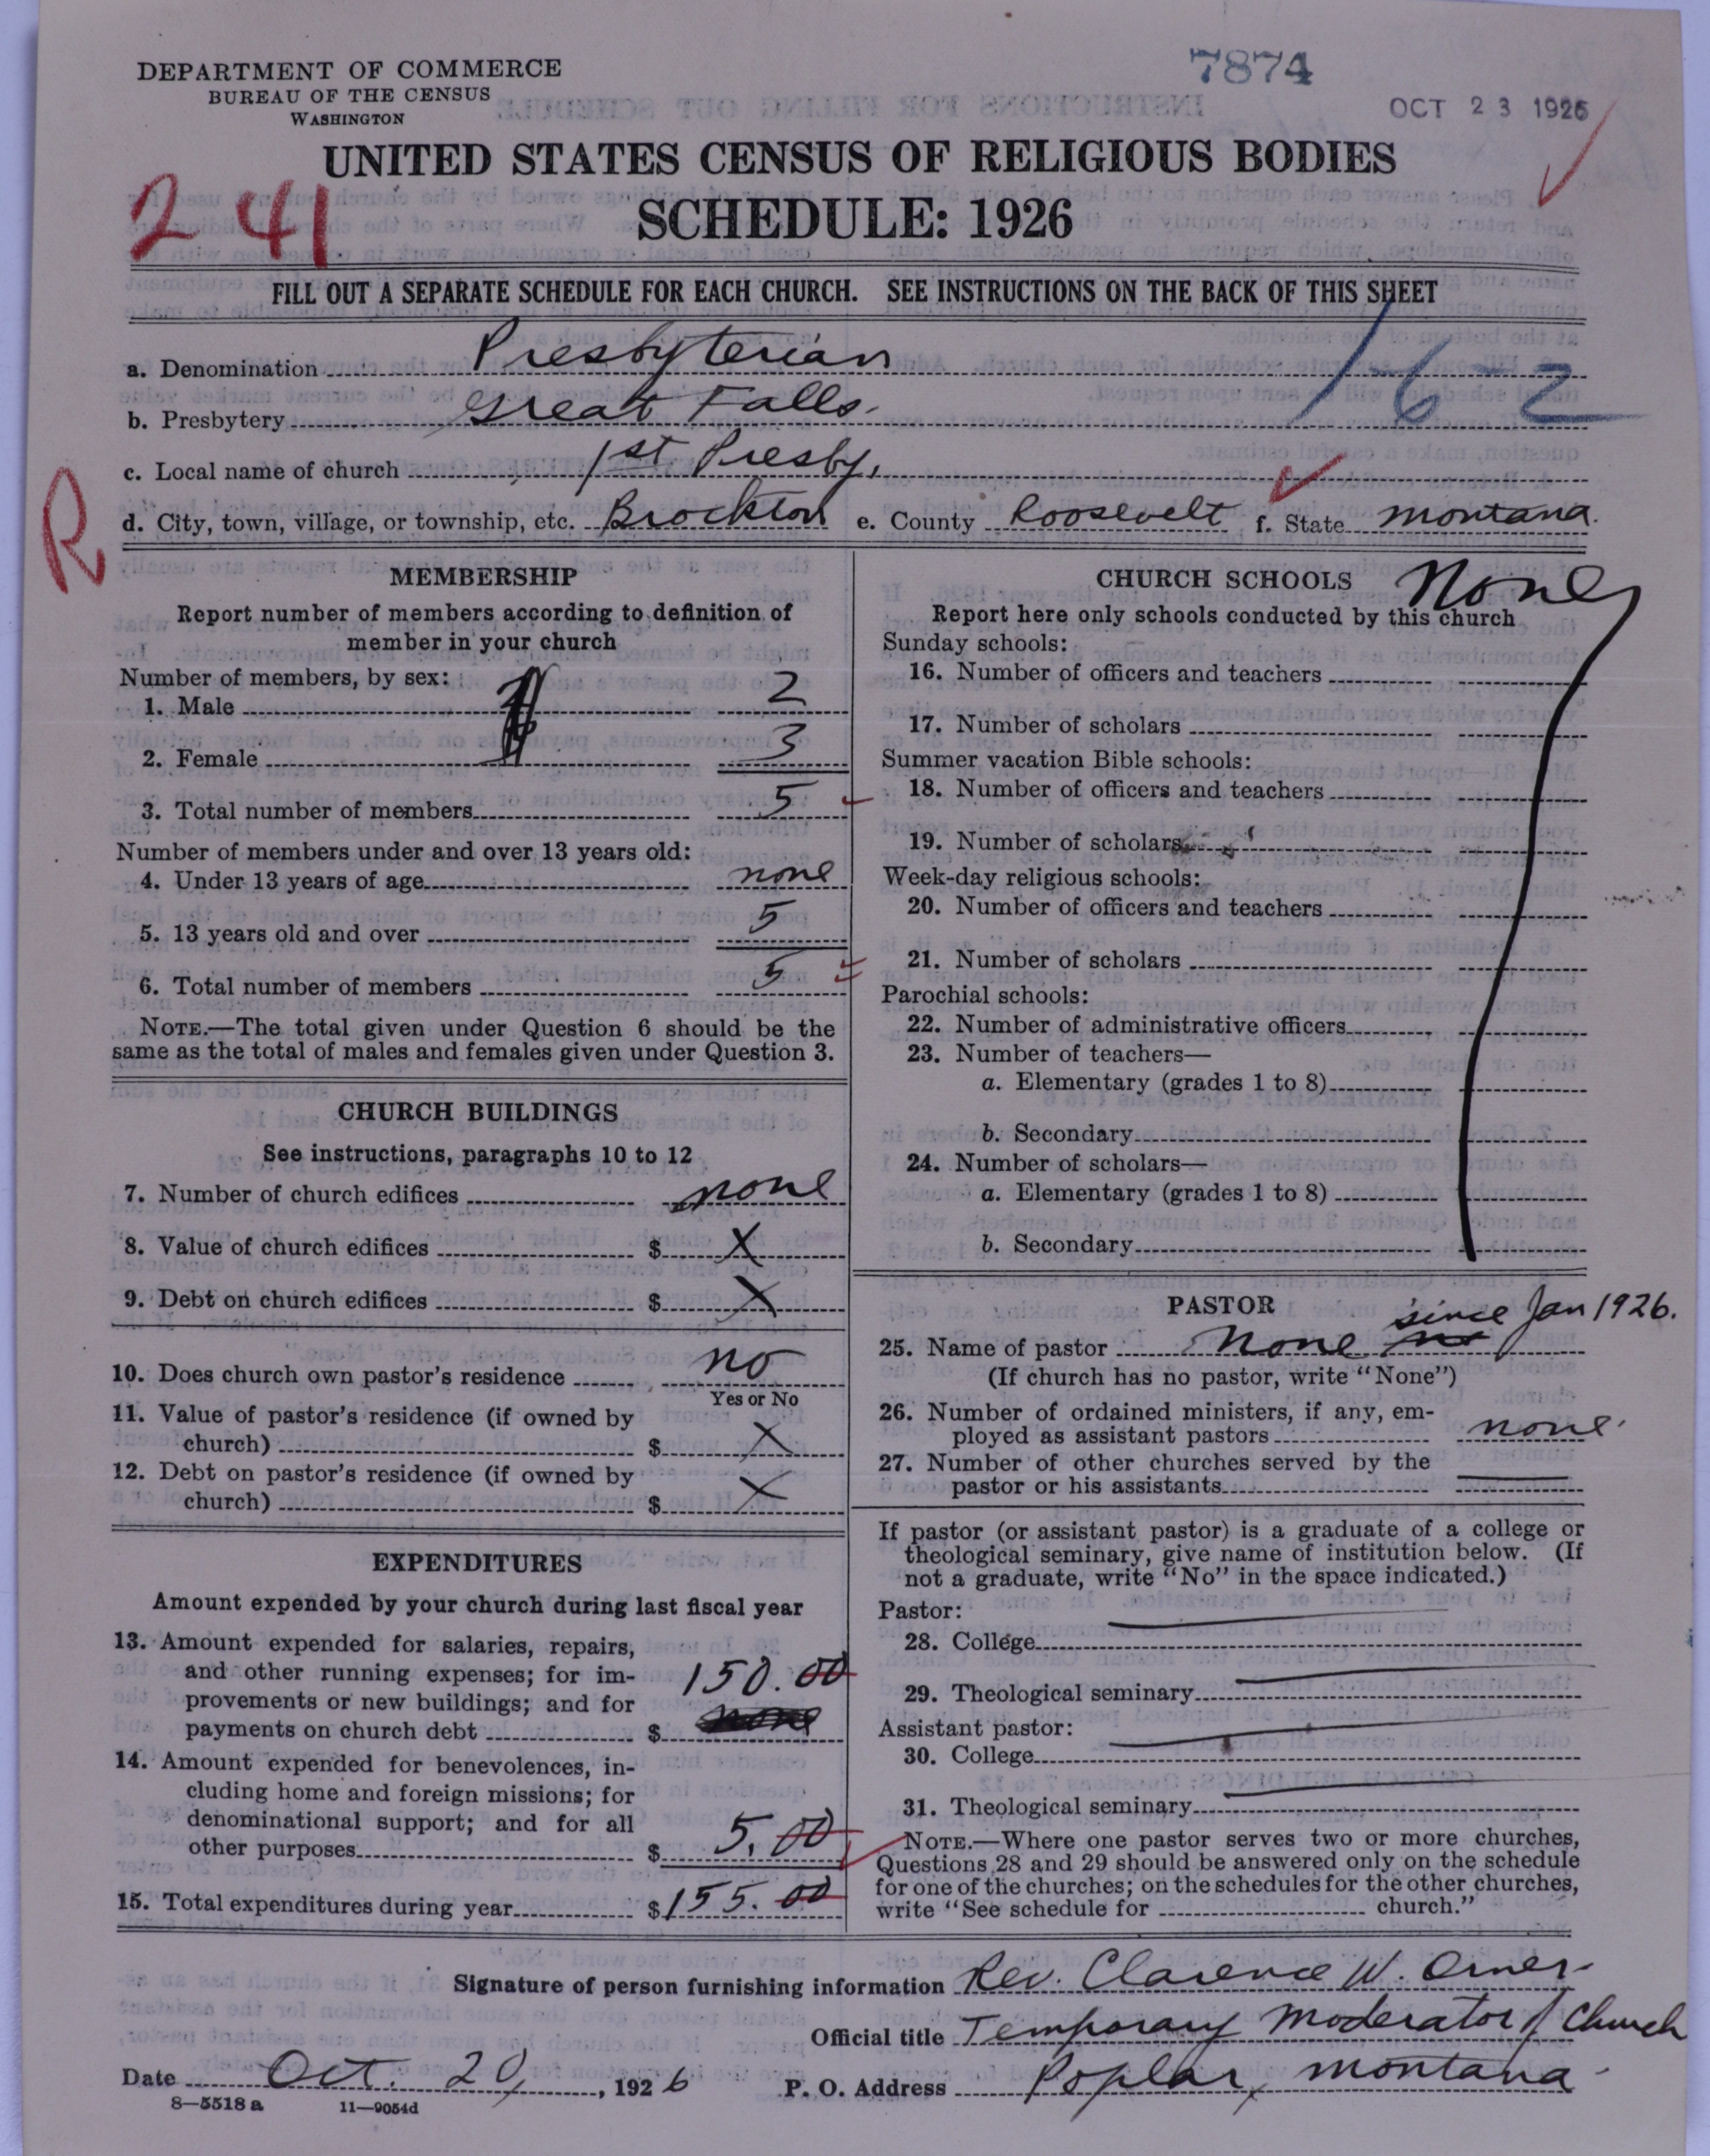 DEPARTMENT OF COMMERCE
BUREAU OF THE CENSUS
WASHINGTON
7874
OCT 23 1926
UNITED STATES CENSUS OF RELIGIOUS BODIES
SCHEDULE: 1926
241
FILL OUT A SEPARATE SCHEDULE FOR EACH CHURCH. SEE INSTRUCTIONS ON THE BACK OF THIS SHEET
a. Denomination Presbyterian
16-2
b. Presbytery Great Falls.
c. Local name of church 1st Presby.
R
d. City, town, village, or township, etc. Brockton e. County Roosevelt f. State Montana.
MEMBERSHIP
Report number of members according to definition of
member in your church
Number of members, by sex:
1. Male 2
2. Female 3
3. Total number of members 5
Number of members under and over 13 years old:
4. Under 13 years of age none
5. 13 years old and over 5
6. Total number of members 5
NOTE.—The total given under Question 6 should be the
same as the total of males and females given under Question 3.
CHURCH BUILDINGS
See instructions, paragraphs 10 to 12
7. Number of church edifices none
8. Value of church edifices $ X
9. Debt on church edifices $ X
10. Does church own pastor's residence no
Yes or No
11. Value of pastor's residence (if owned by
church) $ X
12. Debt on pastor's residence (if owned by
church) $ X
EXPENDITURES
Amount expended by your church during last fiscal year
13. Amount expended for salaries, repairs,
and other running expenses; for im-
provements or new buildings; and for
payments on church debt $ 150.00
none
14. Amount expended for benevolences, in-
cluding home and foreign missions; for
denominational support; and for all
other purposes $ 5.00
15. Total expenditures during year $ 155.00
CHURCH SCHOOLS None
Report here only schools conducted by this church
Sunday schools:
16. Number of officers and teachers
17. Number of scholars
Summer vacation Bible schools:
18. Number of officers and teachers
19. Number of scholars
Week-day religious schools:
20. Number of officers and teachers
21. Number of scholars
Parochial schools:
22. Number of administrative officers
23. Number of teachers—
a. Elementary (grades 1 to 8)
b. Secondary
24. Number of scholars—
a. Elementary (grades 1 to 8)
b. Secondary
PASTOR
25. Name of pastor None since Jan 1926.
(If church has no pastor, write "None")
26. Number of ordained ministers, if any, em-
ployed as assistant pastors none.
27. Number of other churches served by the
pastor or his assistants
If pastor (or assistant pastor) is a graduate of a college or
theological seminary, give name of institution below. (If
not a graduate, write "No" in the space indicated.)
Pastor:
28. College
29. Theological seminary
Assistant pastor:
30. College
31. Theological seminary
NOTE.—Where one pastor serves two or more churches,
Questions 28 and 29 should be answered only on the schedule
for one of the churches; on the schedules for the other churches,
write "See schedule for church."
Signature of person furnishing information Rev. Clarence W. Orner
Official title Temporary Moderator of Church
Date Oct. 20, 1926 P. O. Address Poplar, Montana
8—5518 a 11—9054d